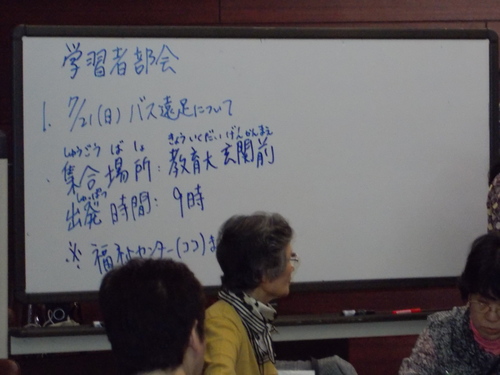 学習者部会
1. 7/21(日) バス遠足について
しゅうごう ばしょ きょういくだいげんかんまえ
・集合場所：教育大玄関前
しゅっぱつ
出発時間：9時
※ 福祉センター(ココ)ま